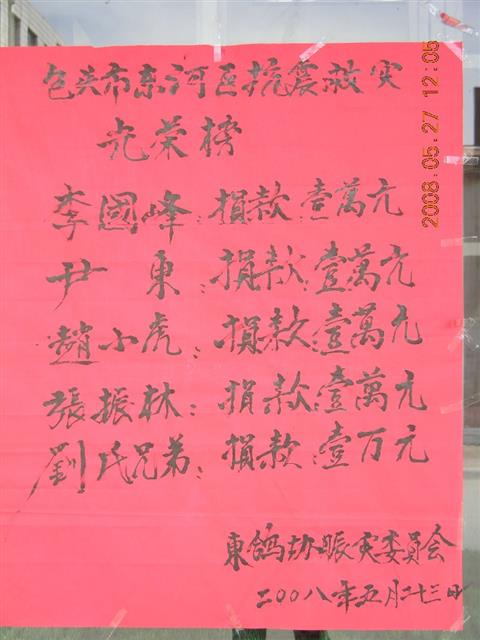 包头市东河区抗震救灾
光荣榜
李國峰:捐款:壹萬元
尹東:捐款:壹萬元
趙小虎:捐款:壹萬元
張振林:捐款:壹萬元
劉氏兄弟:捐款:壹万元
東鴿协赈灾委員会
二00八年五月二十三日
2008.05.27 12:05